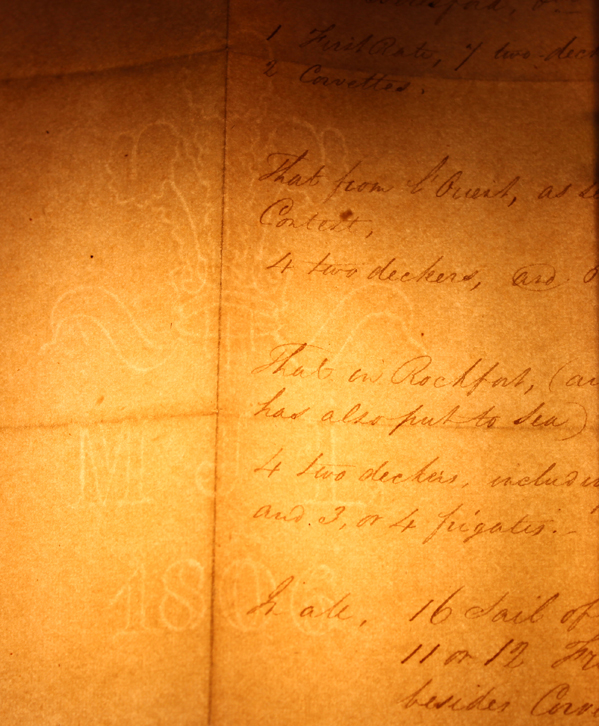 1 First Rate, 7 two-deck
2 Corvettes.
That from l'Orient, as se
Contest,
4 two deckers, and
That in Rochfort, (an
has also put to Sea)
4 two deckers, includin
and 3, or 4 frigates.-
M J L
1806
In all, 16 Sail of
11 or 12 Fr
besides Corv